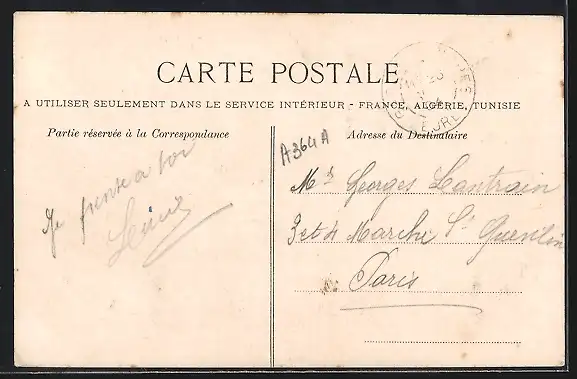 CARTE POSTALE
A UTILISER SEULEMENT DANS LE SERVICE INTÉRIEUR - FRANCE, ALGÉRIE, TUNISIE
Partie réservée à la Correspondance
Adresse du Destinataire
A364A
Je pense a toi
Mr Georges Lantrain
3 et 4 Marché St Quentin
Paris
EURE